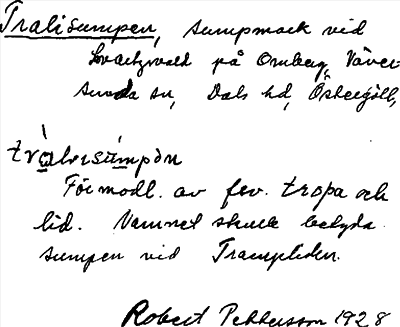 Tralisumpen, sumpmark vid
Svartzvald på Omberg, Väver-
sunda sn, Dals hd, Östergötl.
tràlısumpən
Förmodl. av fsv. tropa och
lid. Namnet skulle betyda
sumpen vid Trampliden.
Robert Pettersson 1928